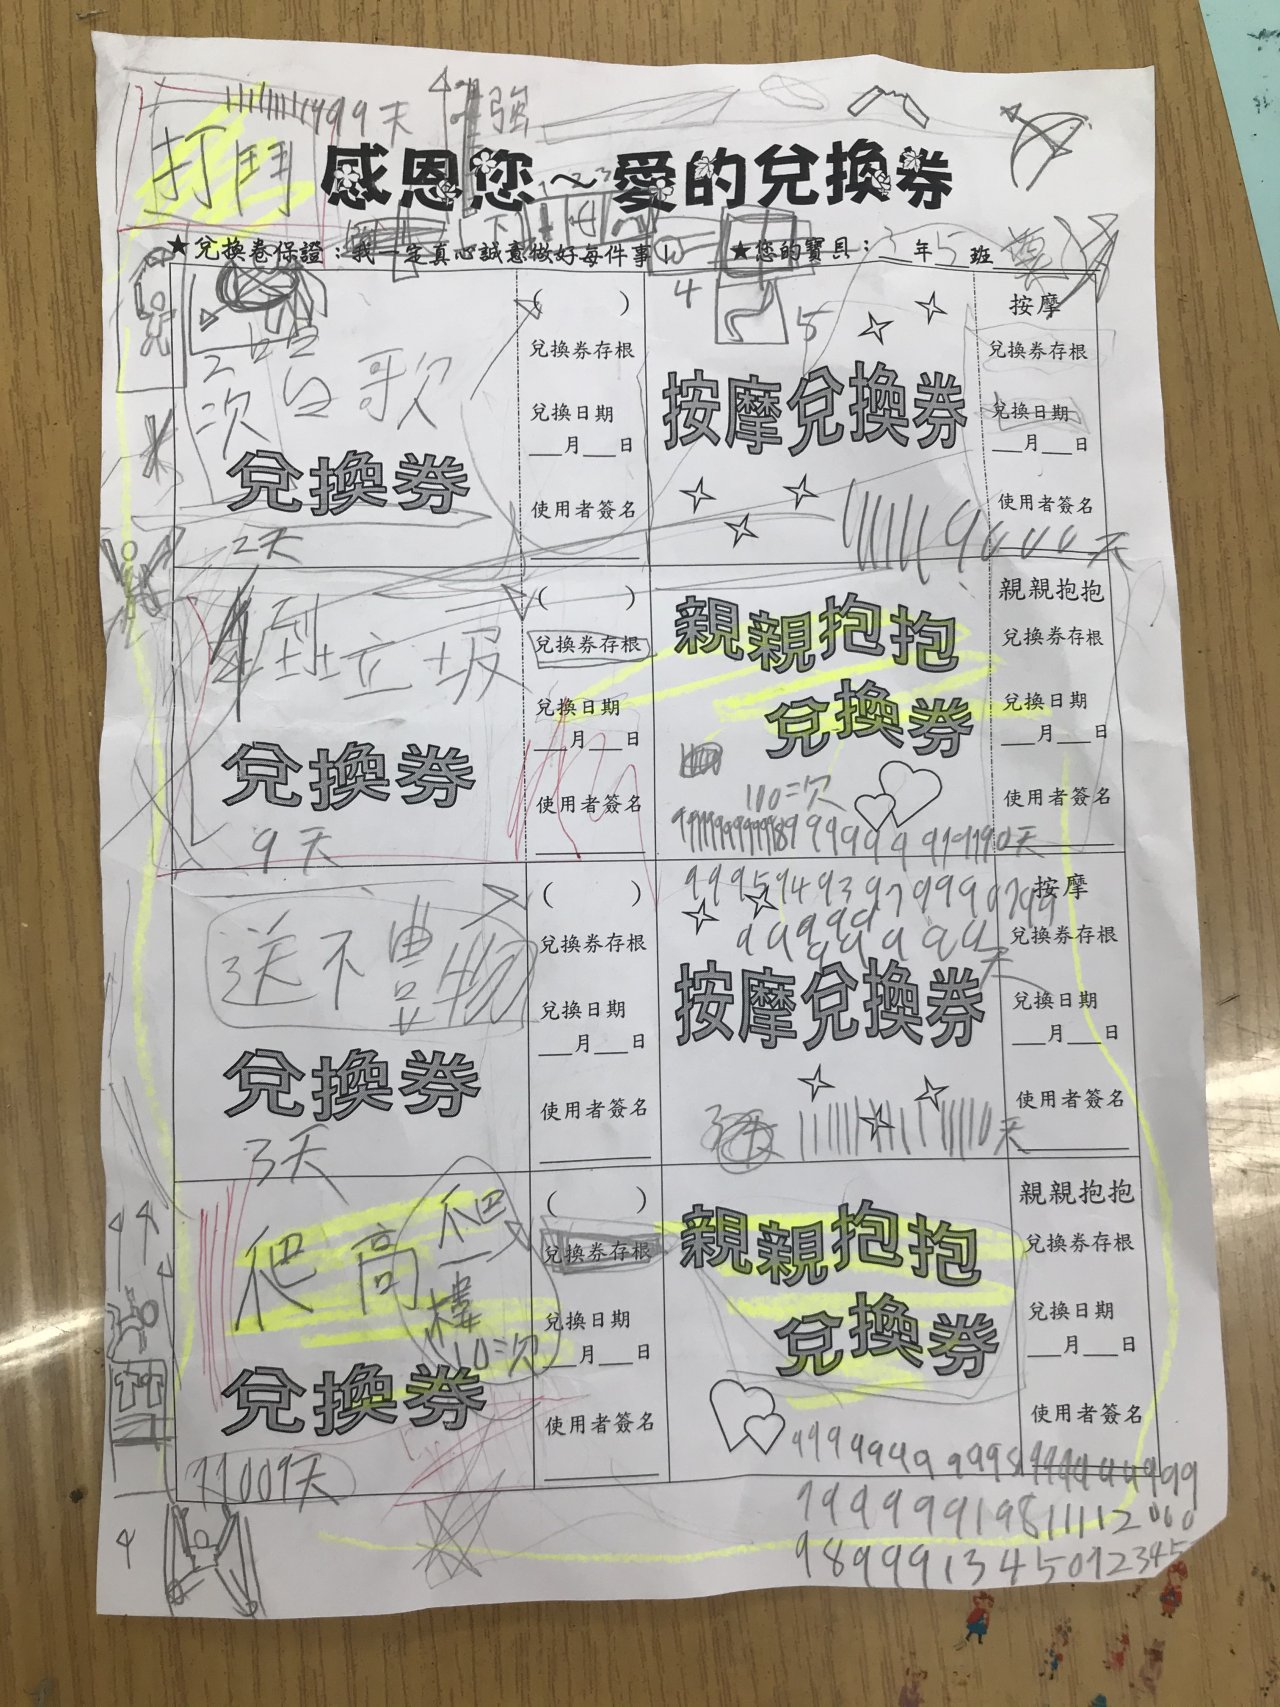 99天
強
打鬥
感恩您～愛的兌換券
★兌換卷保證：我一定真心誠意做好每件事！
★您的寶貝：3年5班
唱歌
2次
兌換券
2天
( )
兌換券存根
兌換日期
__月__日
使用者簽名
4
5
按摩兌換券
天
按摩
兌換券存根
兌換日期
__月__日
使用者簽名
倒垃圾
兌換券
9天
( )
兌換券存根
兌換日期
__月__日
使用者簽名
親親抱抱
兌換券
100次
天
親親抱抱
兌換券存根
兌換日期
__月__日
使用者簽名
送不豊物
兌換券
3天
( )
兌換券存根
兌換日期
__月__日
使用者簽名
天
按摩兌換券
天
按摩
兌換券存根
兌換日期
__月__日
使用者簽名
爬高
爬一樓
10次
兌換券
11009天
( )
兌換券存根
兌換日期
__月__日
使用者簽名
親親抱抱
兌換券
親親抱抱
兌換券存根
兌換日期
__月__日
使用者簽名
989991345092345